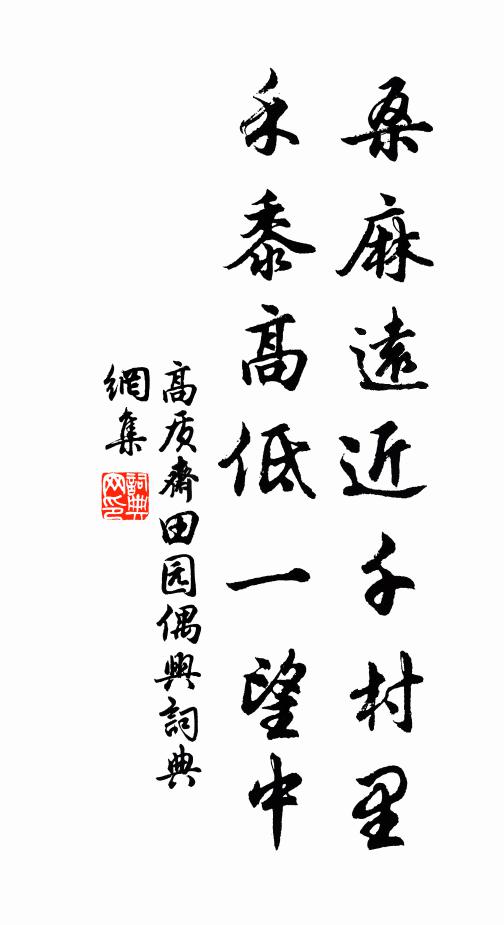 桑麻遠近千村里
禾黍高低一望中
高质齋田园偶興詞典
網集
詞典
网印